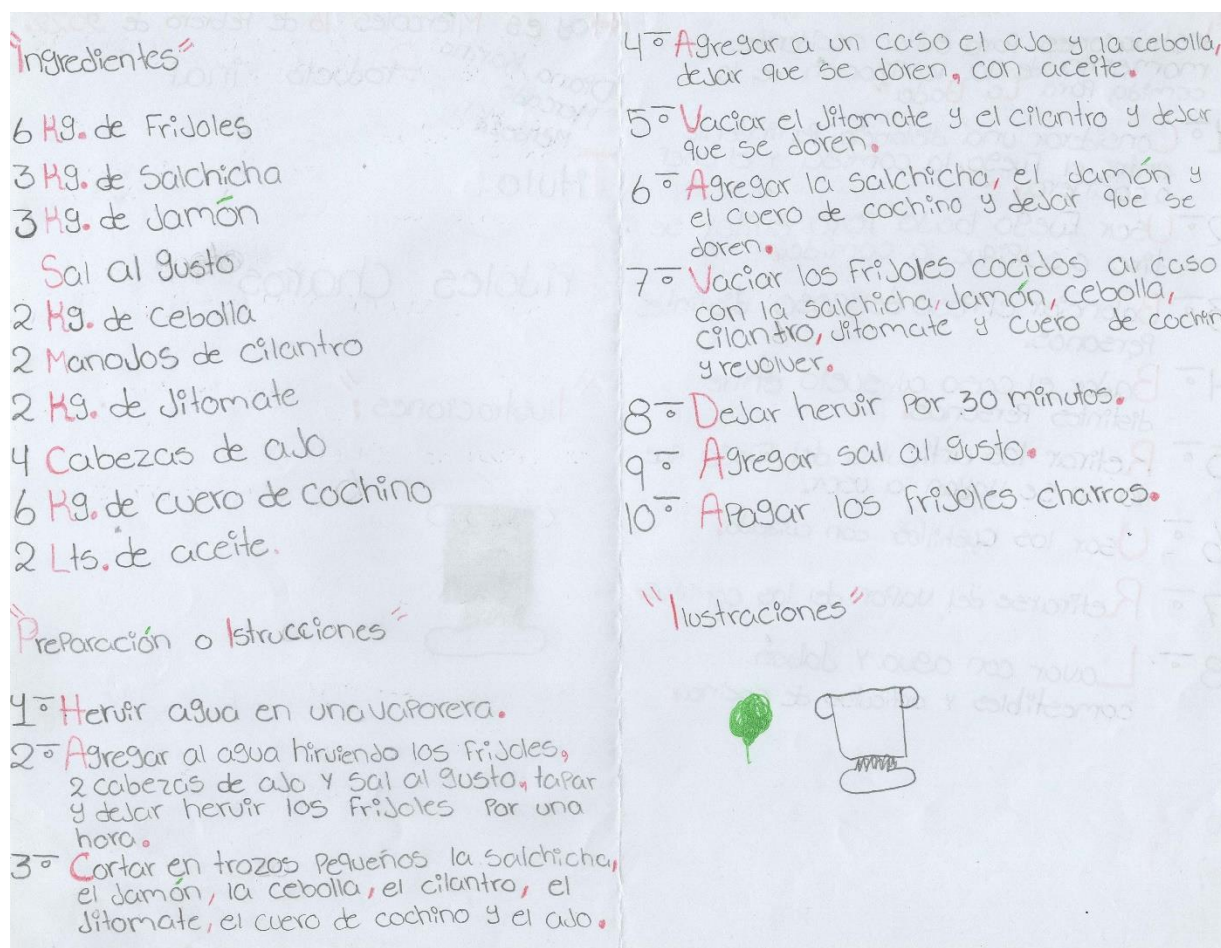 "Ingredientes"
6 Kg. de Frijoles
3 Kg. de Salchicha
3 Kg. de Jamón
Sal al gusto
2 Kg. de cebolla
2 Manojos de cilantro
2 Kg. de Jitomate
4 Cabezas de ajo
6 Kg. de cuero de cochino
2 Lts. de aceite.
"Preparación o Istrucciones"
1° Hervir agua en una vaporera.
2° Agregar al agua hirviendo los frijoles,
2 cabezas de ajo y sal al gusto, tapar
y dejar hervir los frijoles por una
hora.
3° Cortar en trozos pequeños la salchicha,
el jamón, la cebolla, el cilantro, el
Jitomate, el cuero de cochino y el ajo.
4° Agregar a un caso el ajo y la cebolla,
dejar que se doren, con aceite.
5° Vaciar el Jitomate y el cilantro y dejar
que se doren.
6° Agregar la salchicha, el Jamón y
el cuero de cochino y dejar que se
doren.
7° Vaciar los frijoles cocidos al caso
con la salchicha, Jamón, cebolla,
cilantro, Jitomate y cuero de cochin
y revolver.
8° Dejar hervir por 30 minutos.
9° Agregar sal al gusto.
10° Apagar los frijoles charros.
"Ilustraciones"